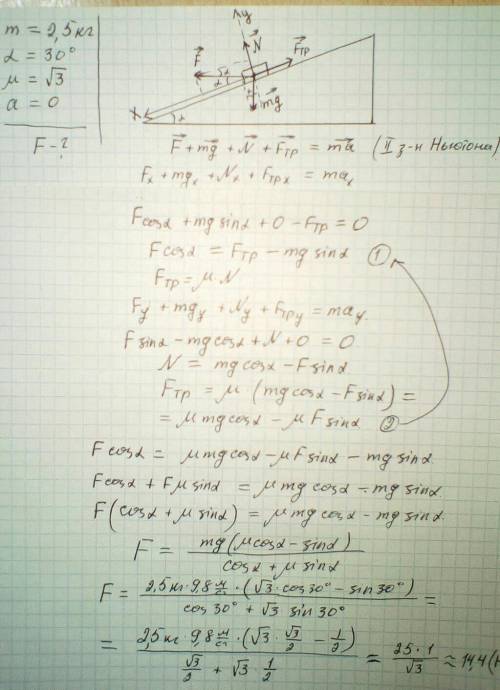 m = 2,5 кг
α = 30°
μ = √3
a = 0
F - ?
y
N⃗
F⃗тр
F⃗
α
α
mg⃗
x
α
F⃗ + mg⃗ + N⃗ + F⃗тр = ma⃗ (II з-н Ньютона)
Fx + mgx + Nx + Fтрx = max
Fcosα + mg sinα + 0 - Fтр = 0
F cosα = Fтр - mg sinα ①
Fтр = μ·N
Fy + mgy + Ny + Fтрy = may.
F sinα - mg cosα + N + 0 = 0
N = mg cosα - F sinα.
Fтр = μ·(mg cosα - F sinα) =
= μ mg cosα - μ F sinα ②
F cosα = μ mg cosα - μ F sinα - mg sinα.
F cosα + Fμ sinα = μ mg cosα - mg sinα.
F(cosα + μ sinα) = μ mg cosα - mg sinα.
F = mg(μ cosα - sinα) / cosα + μ sinα
F = 2,5 кг · 9,8 м/с² · (√3 · cos30° - sin30°) / cos 30° + √3 sin 30° =
= 2,5 кг · 9,8 м/с² · (√3 · √3/2 - 1/2) / √3/2 + √3 · 1/2 = 25 · 1 / √3 ≈ 14,4 (Н